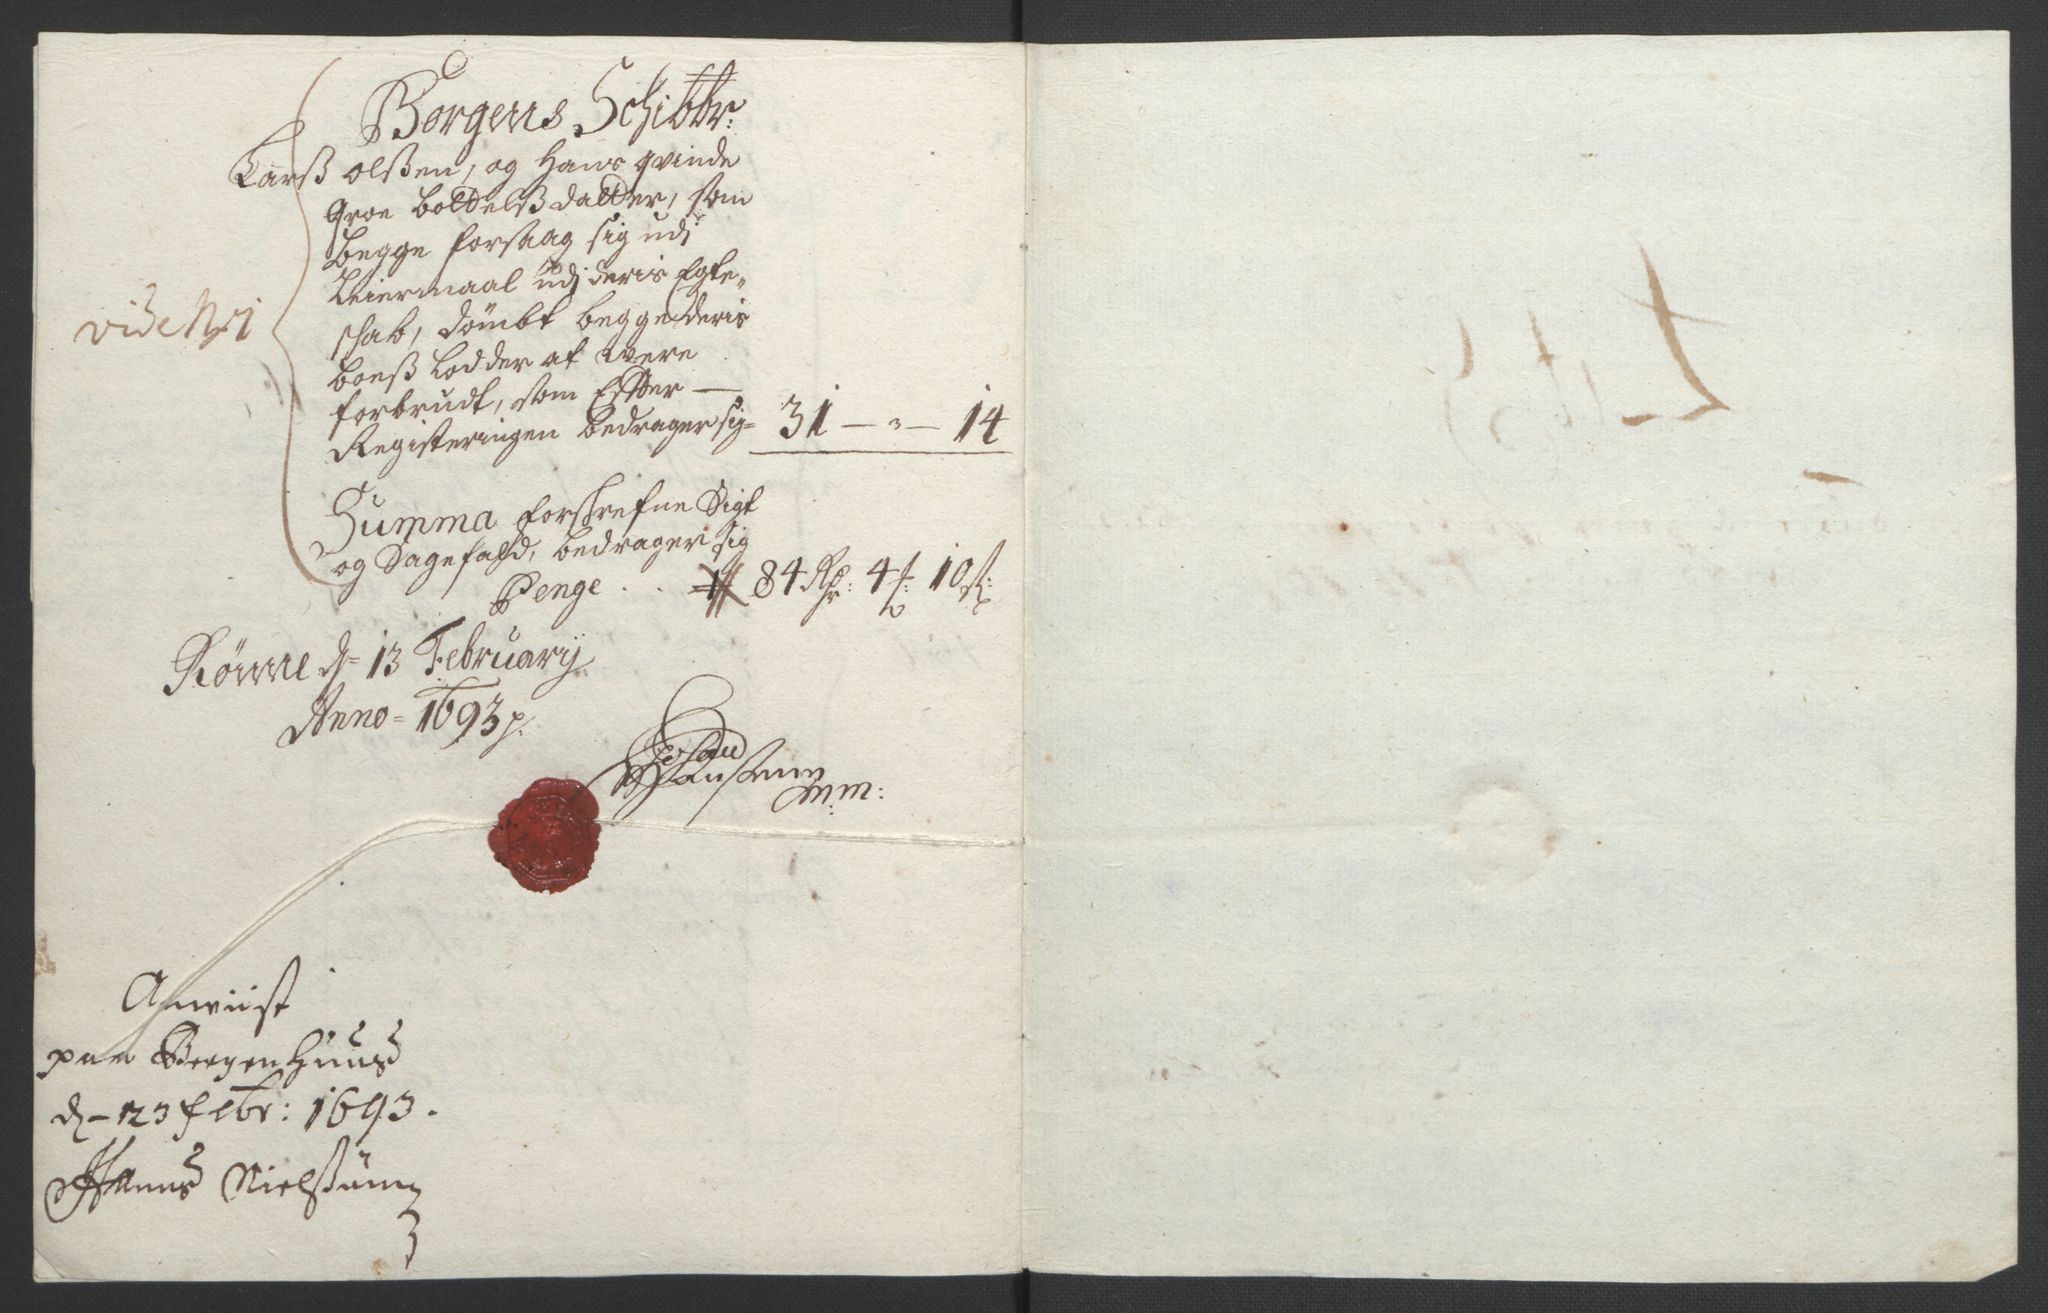 Borgens Schibbr:
Larß olßen, og Hans qvinde
Groe bottelß datter, som
begge forsaag sig udj
Leiermaal udj deris Egte-
schab, dömbt begge deris
boeß Lodder at were
forbrudt, som Efter
Registeringen bedrager sig-
31 - 3 - 14
vide N: 1
Summa forschrefne Sigt
og Sagefald, bedrager sig
Penge . . 84 Rdr: 4 ƒ: 10 ß:
d= 13 February
Anno = 1693 p.
Johan
Hansen
m:m:
Anviist
paa Bergenhuus
d- 23 febr: 1693.
Hanns Nielßøn